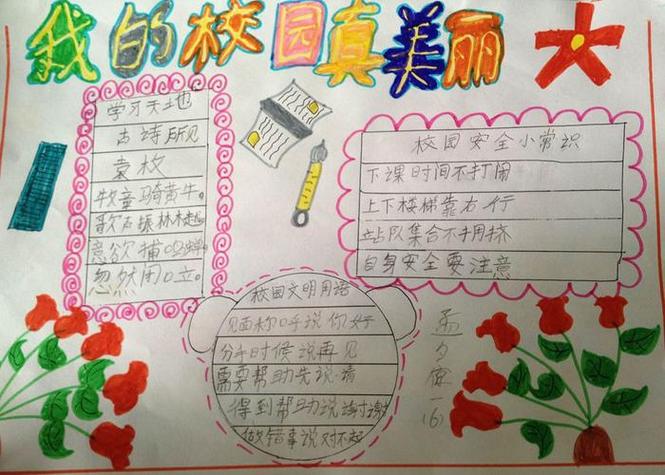 我的校园真美丽
学习天地
古诗所见
袁枚
牧童骑黄牛。
歌声振林樾。
意欲捕鸣蝉
忽然闭口立。
校园安全小常识
下课时间不打闹
上下楼梯靠右行
站队集合不拥挤
自身安全要注意
校园文明用语
见面称呼说你好
分手时候说再见
需要帮助先说请
得到帮助说谢谢
做错事说对不起
一(6)